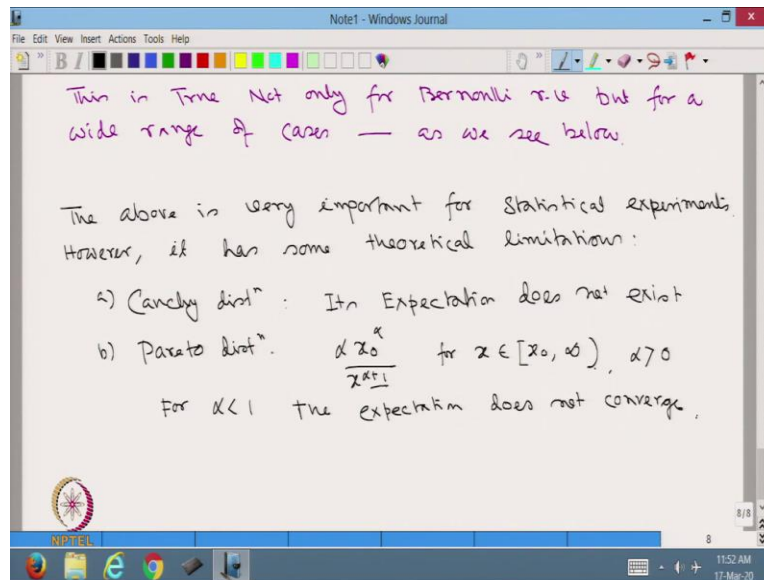 Note1 - Windows Journal
File Edit View Insert Actions Tools Help
B I
This is True Not only for Bernoulli r.v but for a
wide range of cases — as we see below.
The above is very important for Statistical experiments.
However, it has some theoretical limitations:
a) Cauchy distⁿ : Its Expectation does not exist
b) Pareto distⁿ. α x₀^α / x^(α+1) for x ∈ [x₀, ∞), α > 0
For α < 1 the expectation does not converge.
8/8
NPTEL
8
11:52 AM
17-Mar-20